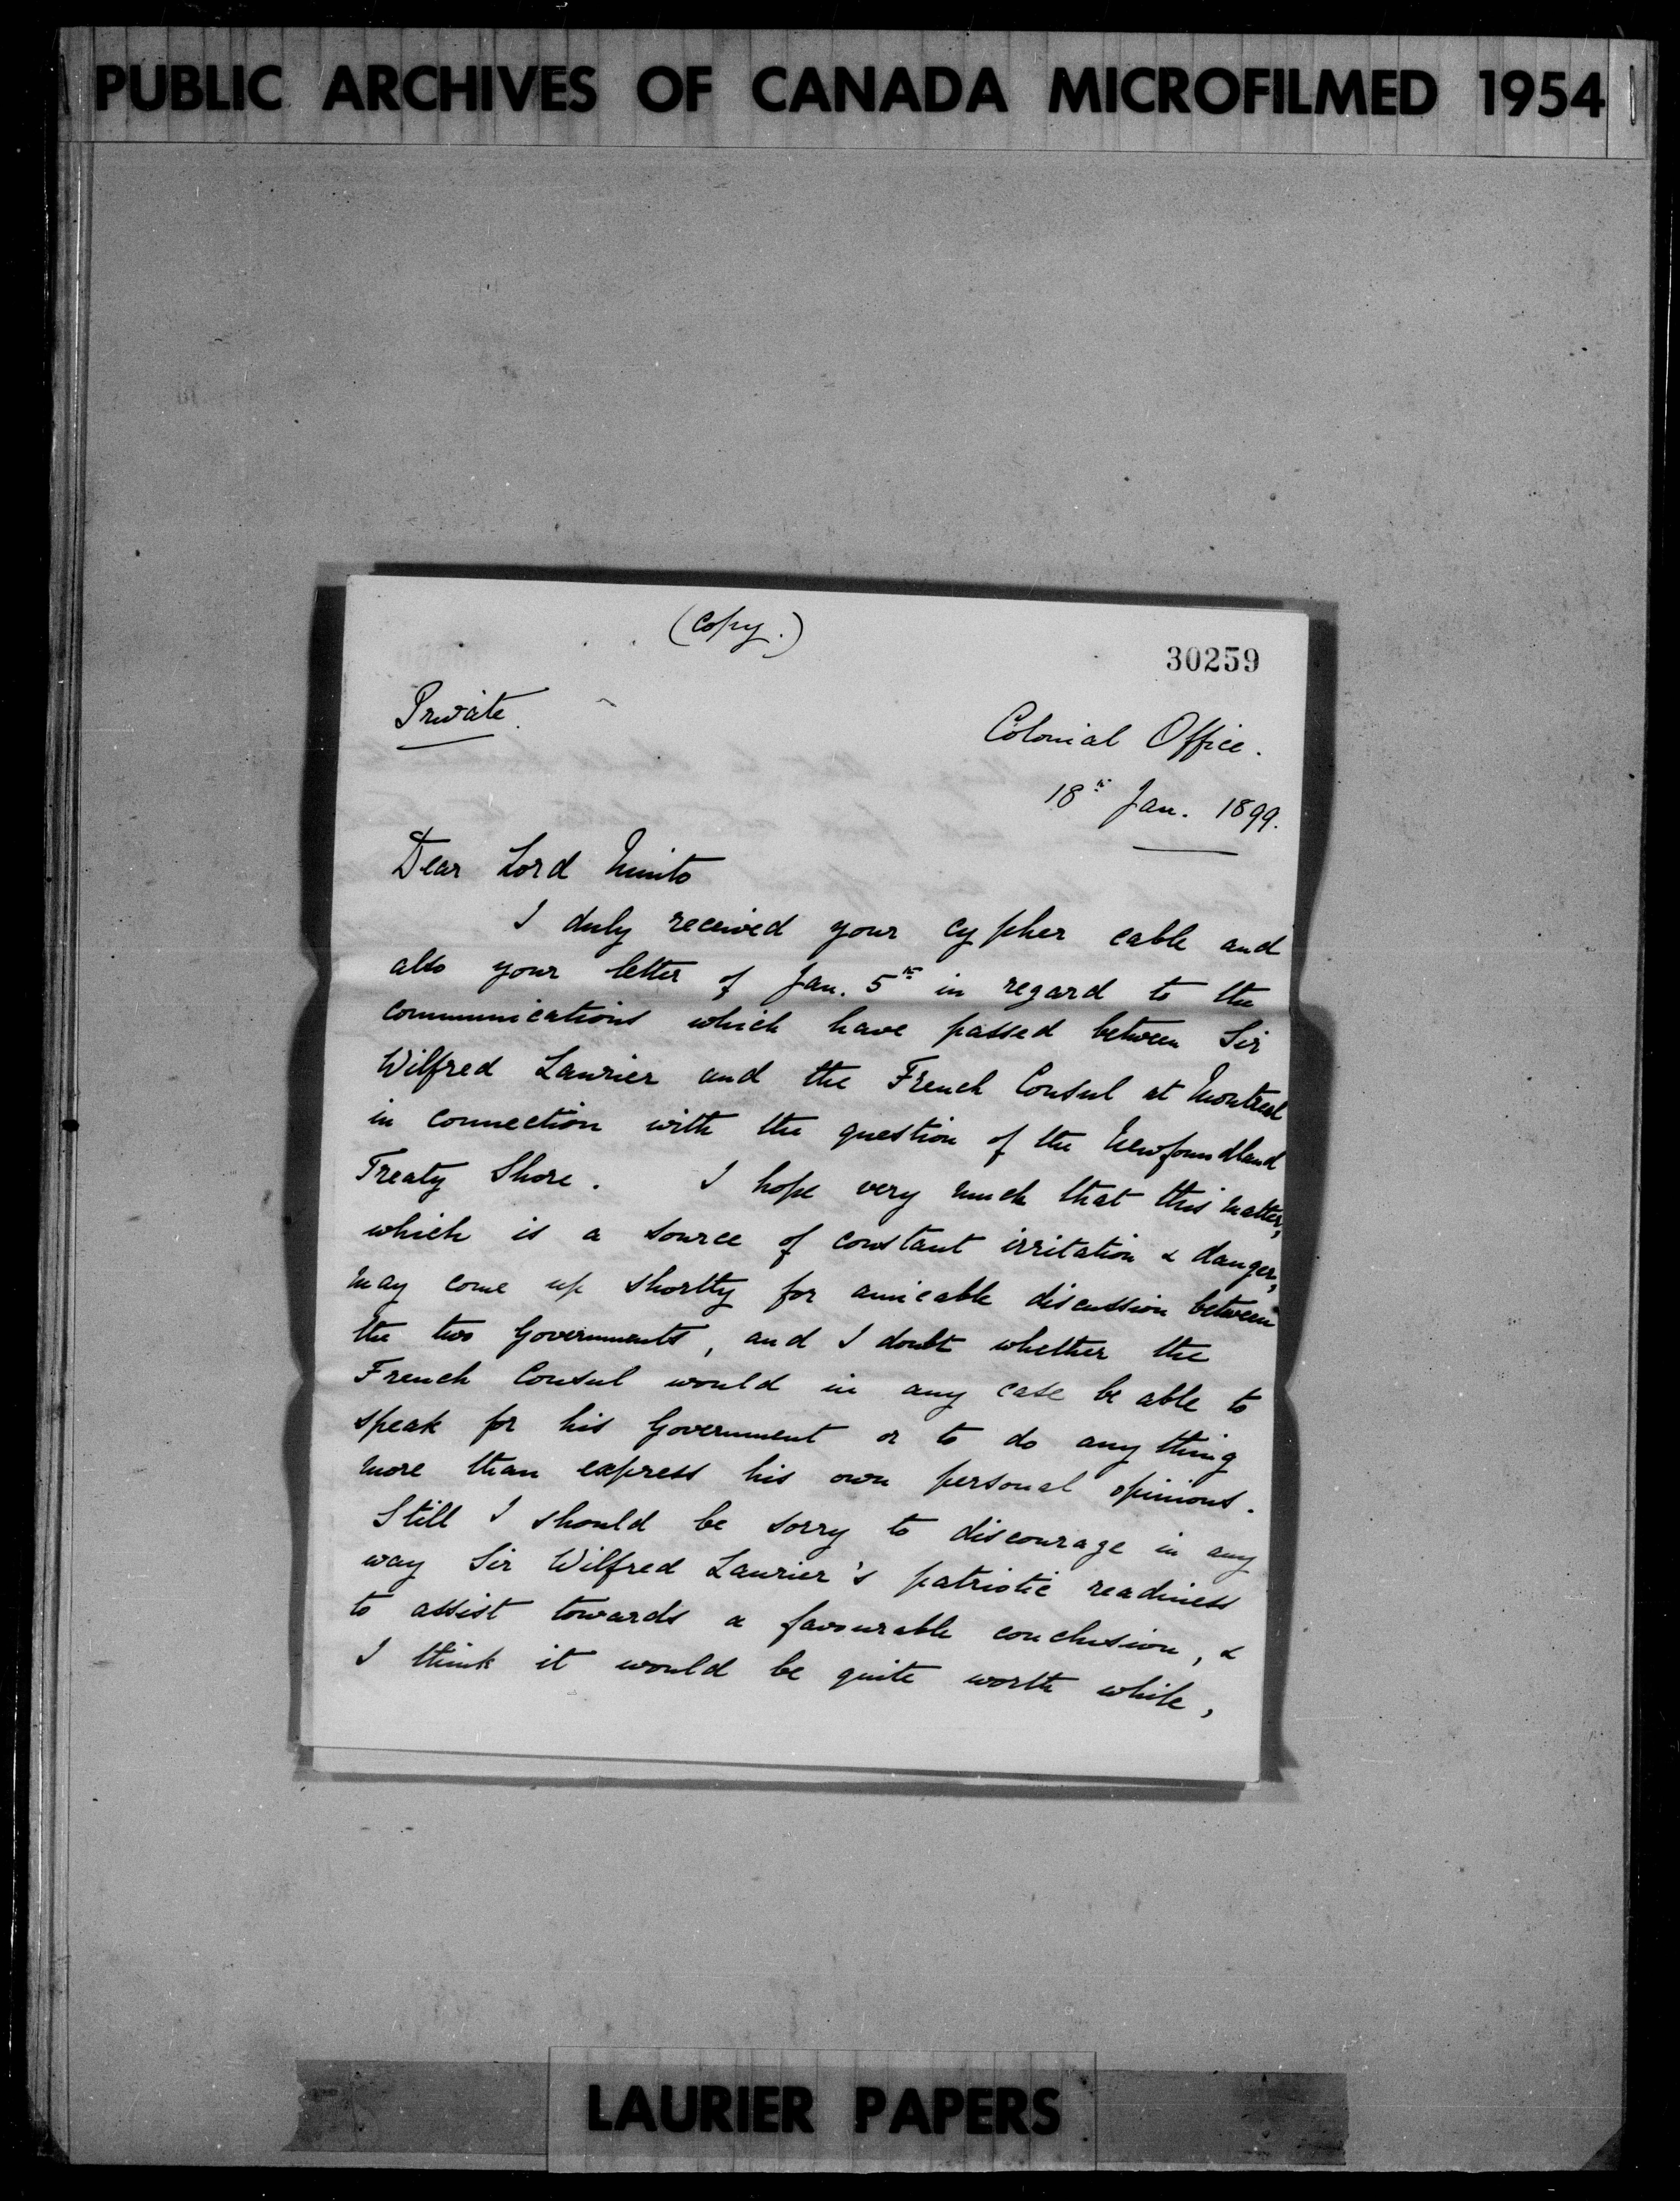 PUBLIC ARCHIVES OF CANADA MICROFILMED 1954
(Copy.)
30259
Private.
Colonial Office.
18th Jan. 1899.
Dear Lord Minto
I duly received your cypher cable and
also your letter of Jan. 5th in regard to the
communications which have passed between Sir
Wilfred Laurier and the French Consul at Montreal
in connection with the question of the Newfoundland
Treaty Shore. I hope very much that this matter,
which is a source of constant irritation & danger,
may come up shortly for amicable discussion between
the two Governments, and I doubt whether the
French Consul would in any case be able to
speak for his Government or to do any thing
more than express his own personal opinions.
Still I should be sorry to discourage in any
way Sir Wilfred Laurier's patriotic readiness
to assist towards a favourable conclusion, &
I think it would be quite worth while,
LAURIER PAPERS